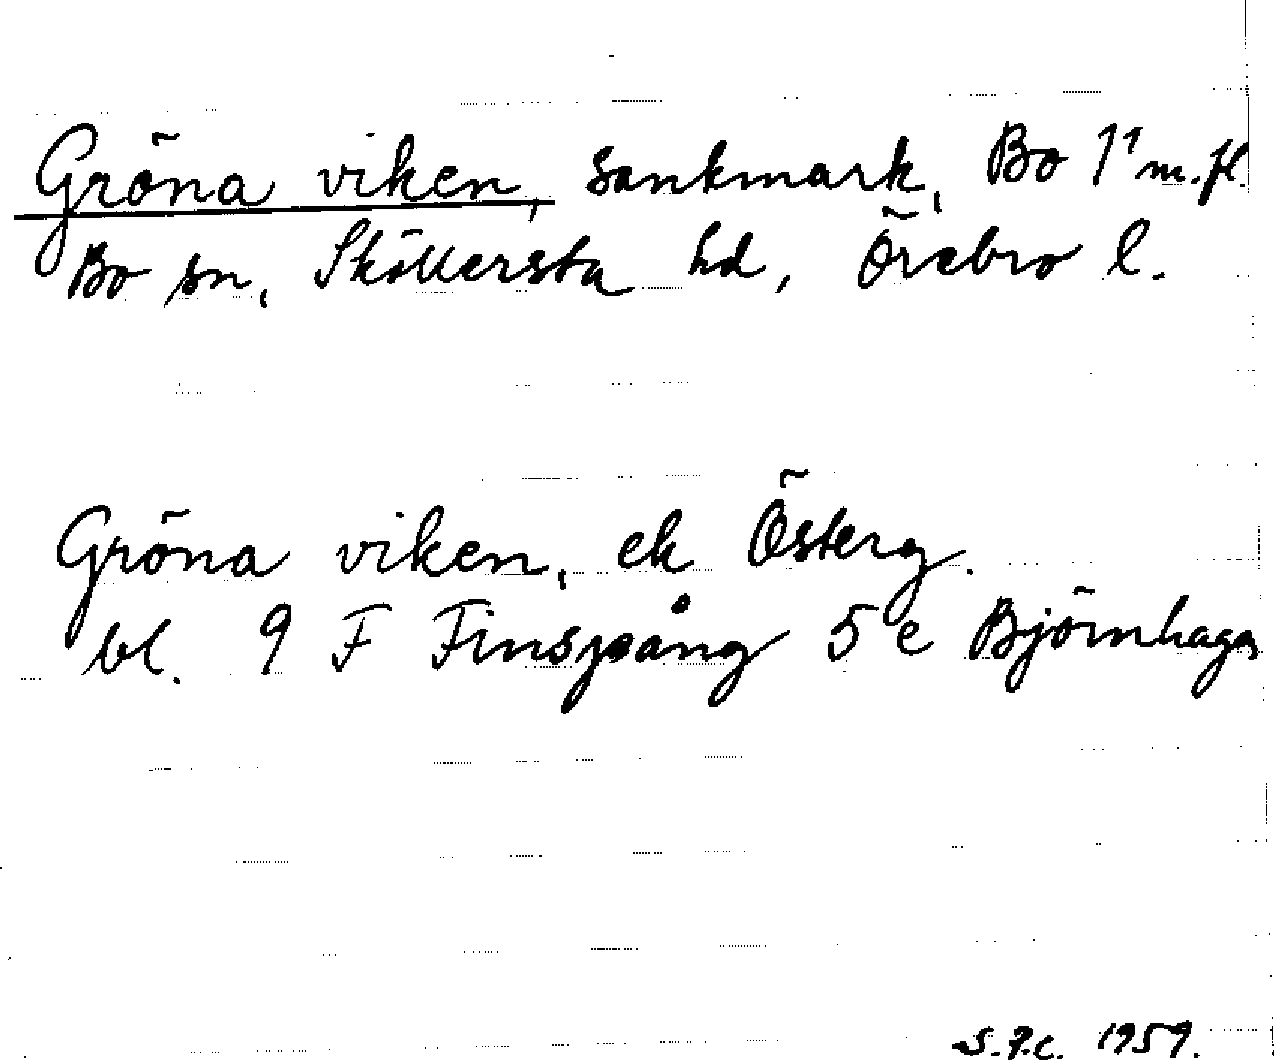 Gröna viken, sankmark, Bo 1¹ m.fl.
Bo sn, Sköllersta hd, Örebro l.
Gröna viken, ek Österg.
bl. 9 F Finspång 5 e Björnhaga
S.P.C. 1959.